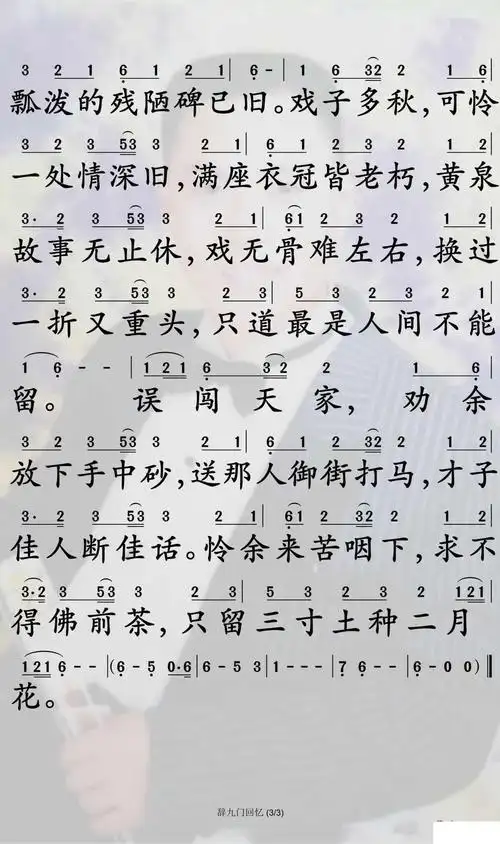 3 2 1 6 1 2 1 | 6 - | 1 6 32 2 1 6 |
瓢泼的残陋碑已旧。戏子多秋，可怜
3 2 3 53 3 2 1 | 6 1 2 32 2 1 2 |
一处情深旧，满座衣冠皆老朽，黄泉
3· 2 3 53 3 2 1 | 61 2 32 2 1 2 |
故事无止休，戏无骨难左右，换过
3· 2 3 53 3 2 3 | 5 3 2 3 2 1 |
一折又重头，只道最是人间不能
1 6 - - | 1 2 1 6 32 2 1 6 |
留。 误闯天家，劝余
3 2 3 53 3 2 1 | 6 1 2 32 2 1 2 |
放下手中砂，送那人御街打马，才子
3· 2 3 53 3 2 1 | 61 2 32 2 1 2 |
佳人断佳话。怜余来苦咽下，求不
3·2 3 53 3 2 3 | 5 3 2 3 2 121 |
得佛前茶，只留三寸土种二月
121 6 - - | (6 - 5 0·6 | 6 - 5 3 | 1 - - - | 7 6 - - | 6 - 0 0 ) ‖
花。
辞九门回忆 (3/3)